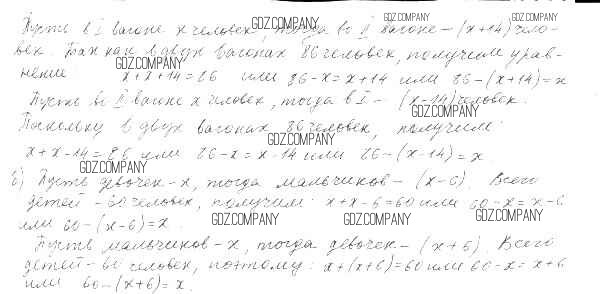 Пусть в I вагоне x человек, тогда во II вагоне – (x+14) чело-
век. Так как в двух вагонах 86 человек, получим урав-
нение x + x + 14 = 86 или 86 – x = x + 14 или 86 – (x+14) = x
Пусть во II вагоне x человек, тогда в I – (x-14) человек.
Поскольку в двух вагонах 86 человек, получим:
x + x – 14 = 86 или 86 – x = x – 14 или 86 – (x – 14) = x.
б) Пусть девочек – x, тогда мальчиков – (x – 6). Всего
детей – 60 человек, получим: x + x – 6 = 60 или 60 – x = x – 6
или 60 – (x – 6) = x.
Пусть мальчиков – x, тогда девочек – (x + 6). Всего
детей – 60 человек, поэтому: x + (x + 6) = 60 или 60 – x = x + 6
или 60 – (x + 6) = x.
GDZ.COMPANY
GDZ.COMPANY
GDZ.COMPANY
GDZ.COMPANY
GDZ.COMPANY
GDZ.COMPANY
GDZ.COMPANY
GDZ.COMPANY
GDZ.COMPANY
GDZ.COMPANY
GDZ.COMPANY